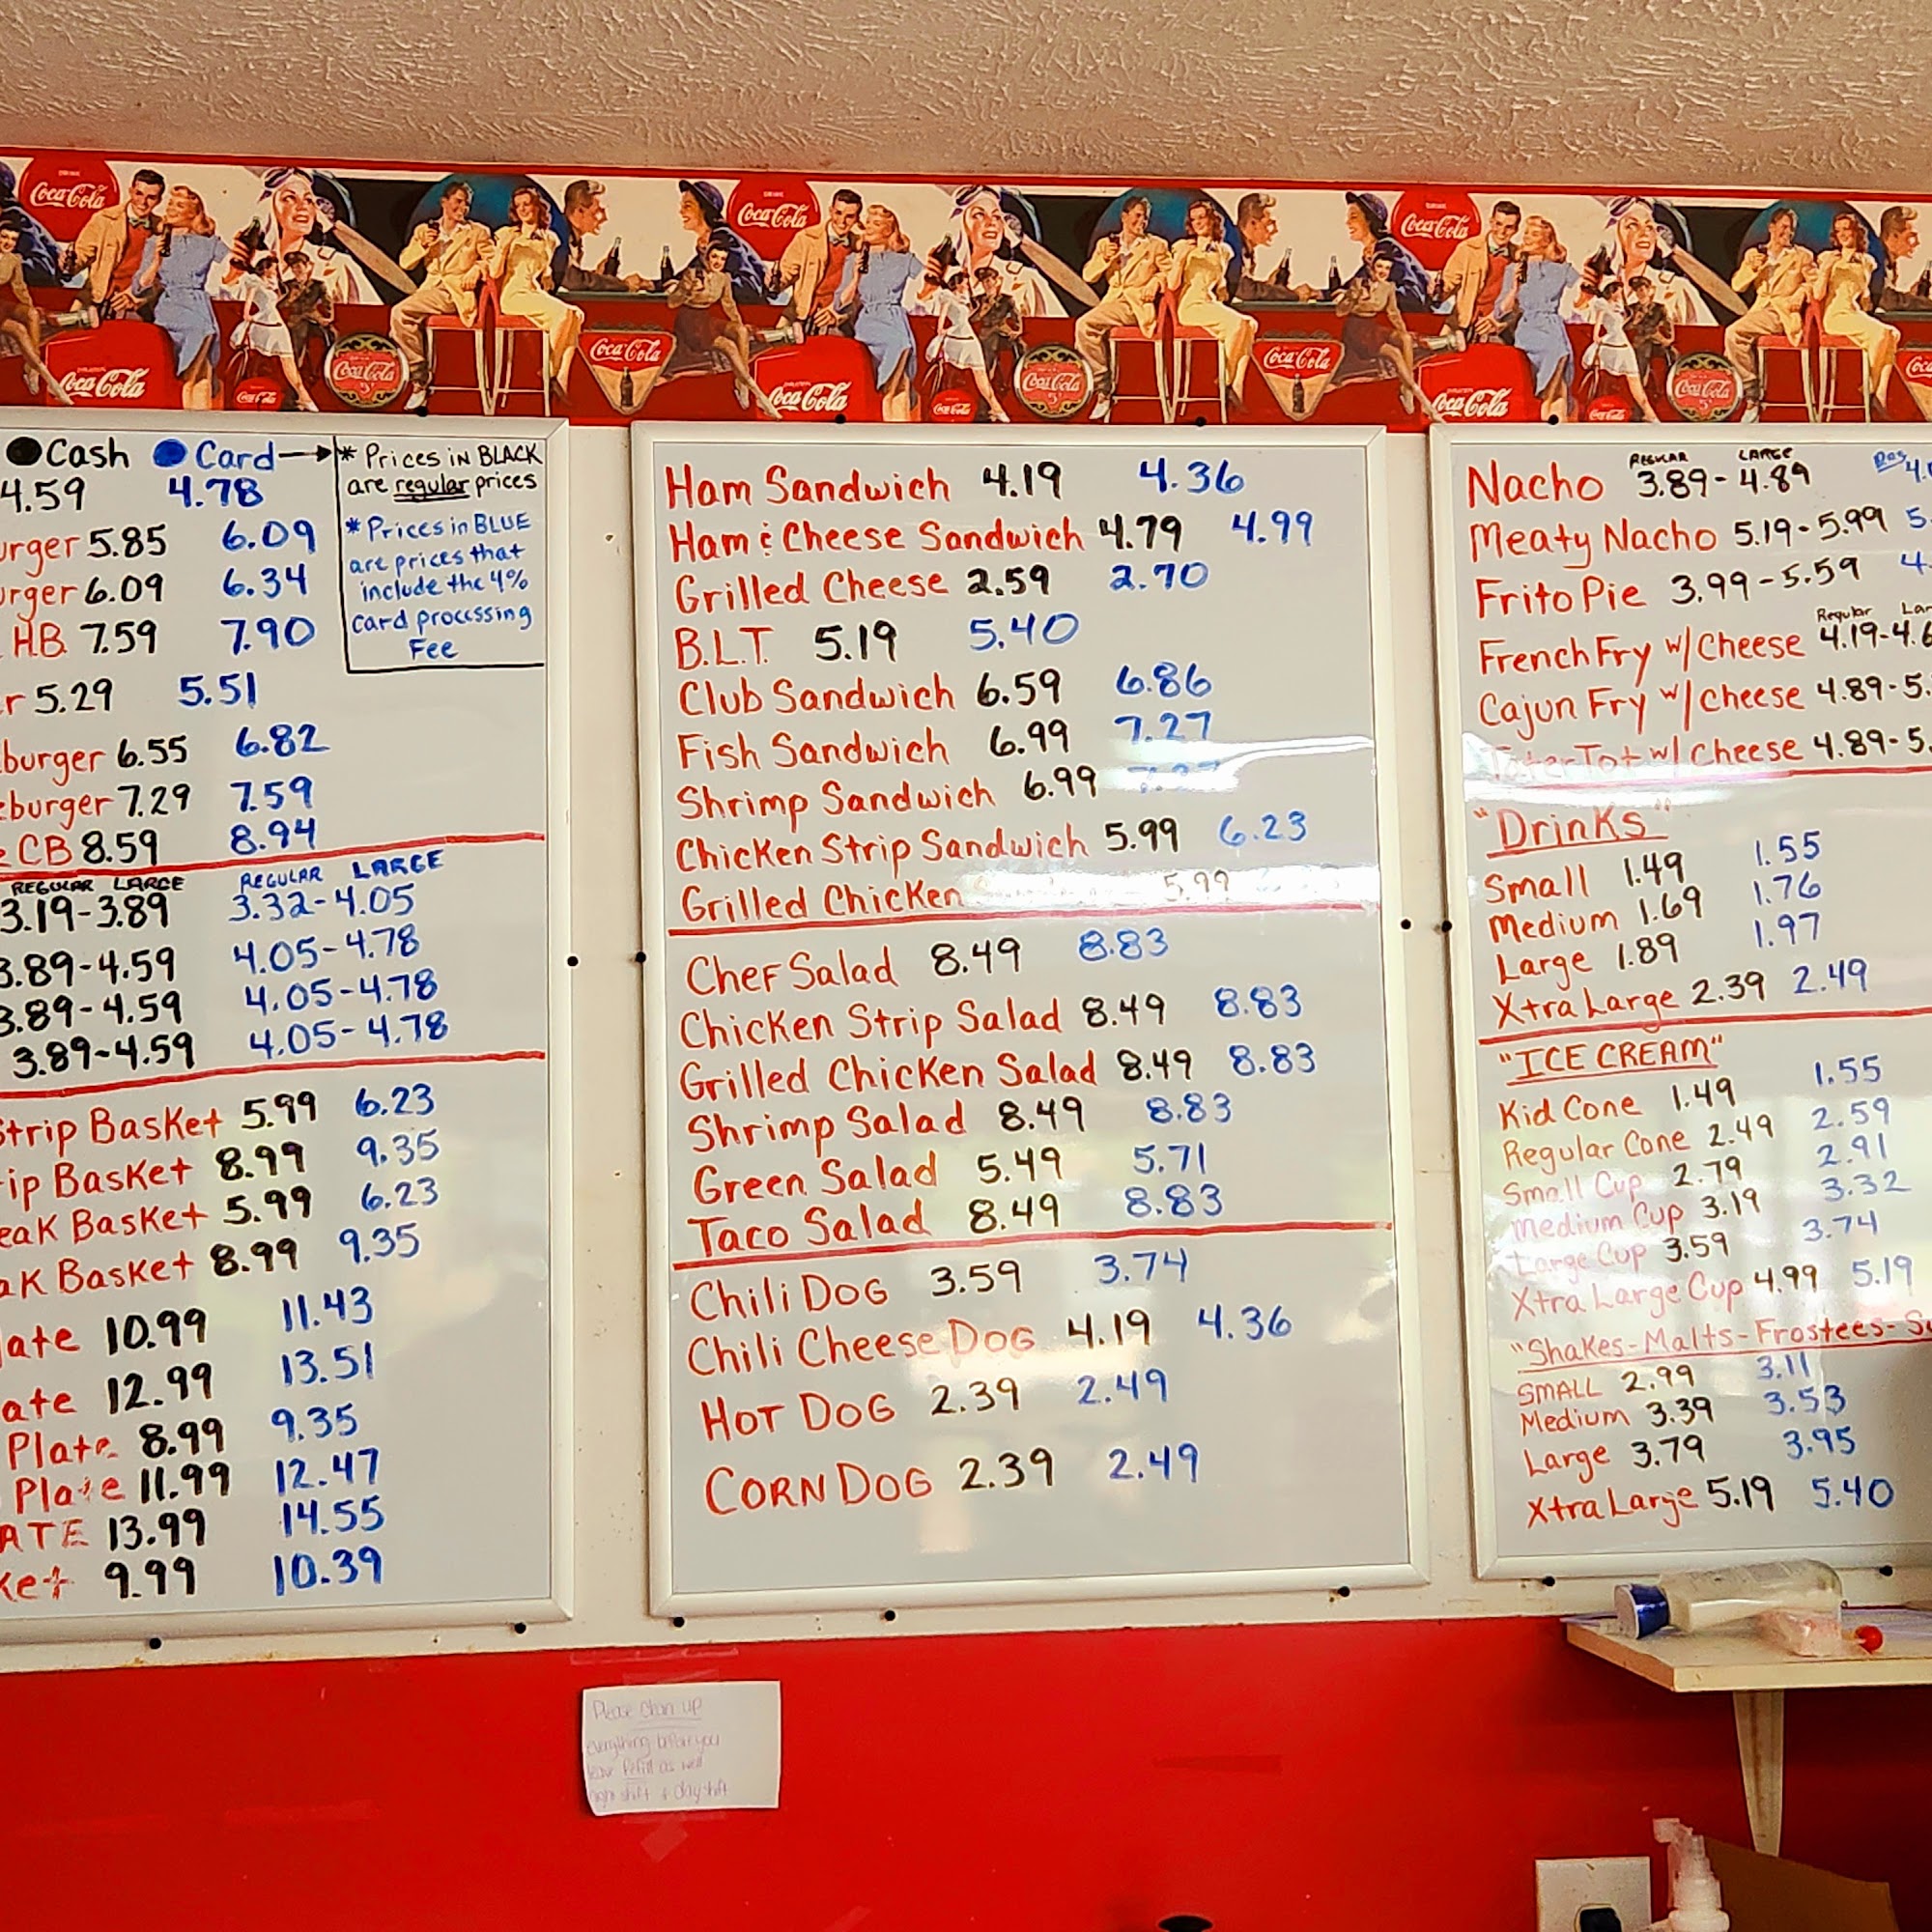 Coca-Cola
Coca-Cola
Coca-Cola
Coca-Cola
Coca-Cola
Coca-Cola
Coca-Cola
Coca-Cola
Coca-Cola
Coca-Cola
Coca-Cola
Coca-Cola
Coca-Cola
Coca-Cola
Cash Card
4.59 4.78
urger 5.85 6.09
urger 6.09 6.34
H.B. 7.59 7.90
r 5.29 5.51
burger 6.55 6.82
burger 7.29 7.59
CB 8.59 8.94
* Prices in BLACK
are regular prices
* Prices in BLUE
are prices that
include the 4%
card processing
Fee
REGULAR LARGE REGULAR LARGE
3.19-3.89 3.32-4.05
3.89-4.59 4.05-4.78
3.89-4.59 4.05-4.78
3.89-4.59 4.05-4.78
Strip Basket 5.99 6.23
ip Basket 8.99 9.35
eak Basket 5.99 6.23
ak Basket 8.99 9.35
late 10.99 11.43
ate 12.99 13.51
Plate 8.99 9.35
Plate 11.99 12.47
ATE 13.99 14.55
ket 9.99 10.39
Ham Sandwich 4.19 4.36
Ham & Cheese Sandwich 4.79 4.99
Grilled Cheese 2.59 2.70
B.L.T. 5.19 5.40
Club Sandwich 6.59 6.86
Fish Sandwich 6.99 7.27
Shrimp Sandwich 6.99
Chicken Strip Sandwich 5.99 6.23
Grilled Chicken 5.99
Chef Salad 8.49 8.83
Chicken Strip Salad 8.49 8.83
Grilled Chicken Salad 8.49 8.83
Shrimp Salad 8.49 8.83
Green Salad 5.49 5.71
Taco Salad 8.49 8.83
Chili DOG 3.59 3.74
Chili Cheese DOG 4.19 4.36
HOT DOG 2.39 2.49
CORN DOG 2.39 2.49
REGULAR LARGE
Nacho 3.89-4.89
Meaty Nacho 5.19-5.99 5
Frito Pie 3.99-5.59 4
Regular Lar
French Fry w/ Cheese 4.19-4.6
Cajun Fry w/ Cheese 4.89-5.
Tater Tot w/ Cheese 4.89-5.
"Drinks"
Small 1.49 1.55
Medium 1.69 1.76
Large 1.89 1.97
Xtra Large 2.39 2.49
"ICE CREAM"
Kid Cone 1.49 1.55
Regular Cone 2.49 2.59
Small Cup 2.79 2.91
Medium Cup 3.19 3.32
Large Cup 3.59 3.74
Xtra Large Cup 4.99 5.19
"Shakes-Malts-Frostees-Su
SMALL 2.99 3.11
Medium 3.39 3.53
Large 3.79 3.95
Xtra Large 5.19 5.40
Please Clean up
everything before you
leave Refill as well
night shift + day shift